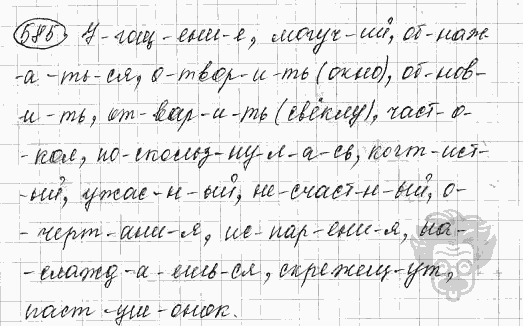 585. У-гощ-ени-е, могуч-ий, от-наж
-а-ть-ся, о-твор-и-ть (окно), об-нов-
и-ть, от-вар-и-ть (свёклу), част-о-
-кол, по-скольз-ну-л-а-сь, когт-ист-
-ый, ужас-н-ый, не-счаст-н-ый, о-
-черт-ани-я, ис-пар-ени-я, на-
-слажд-а-ешь-ся, скрежещ-ут,
паст-уш-онок.